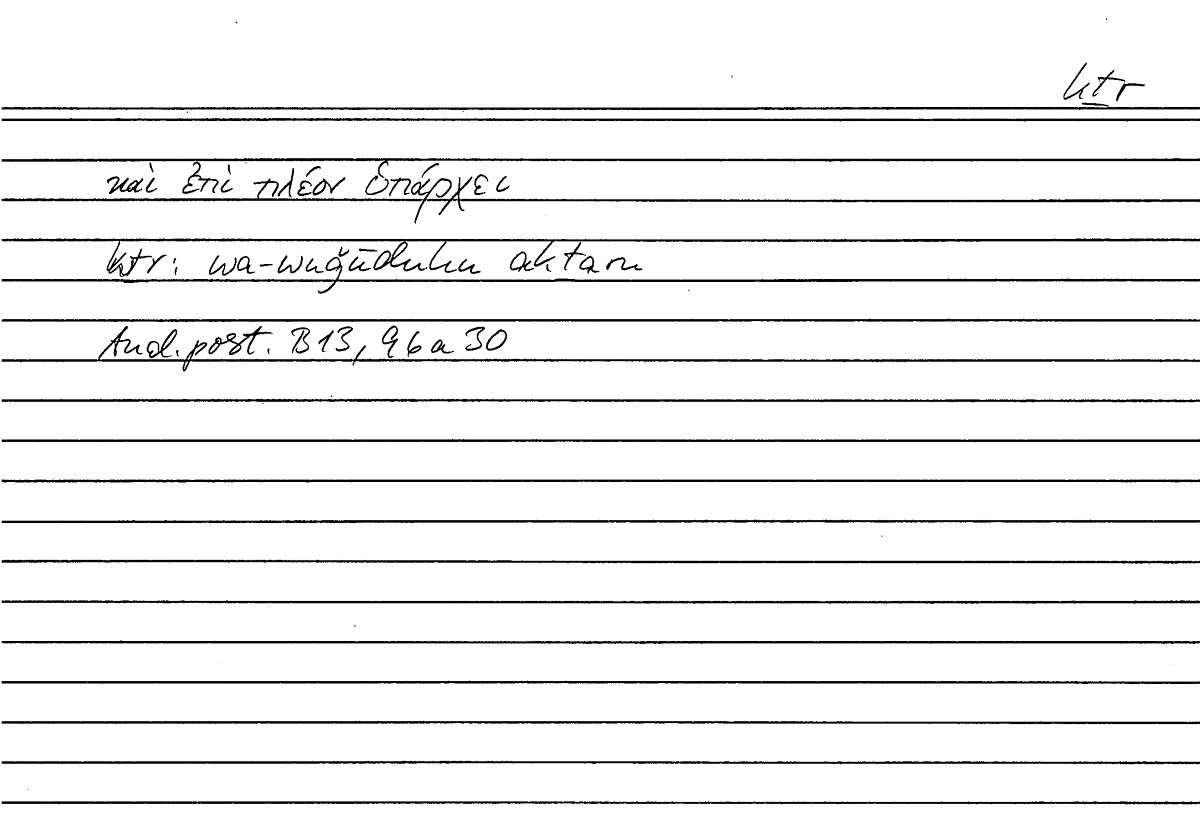 kṯr
καὶ ἐπὶ πλέον ὑπάρχει
kṯr: wa-wuǧūduhu akṯaru
Anal. post. B 13, 96 a 30